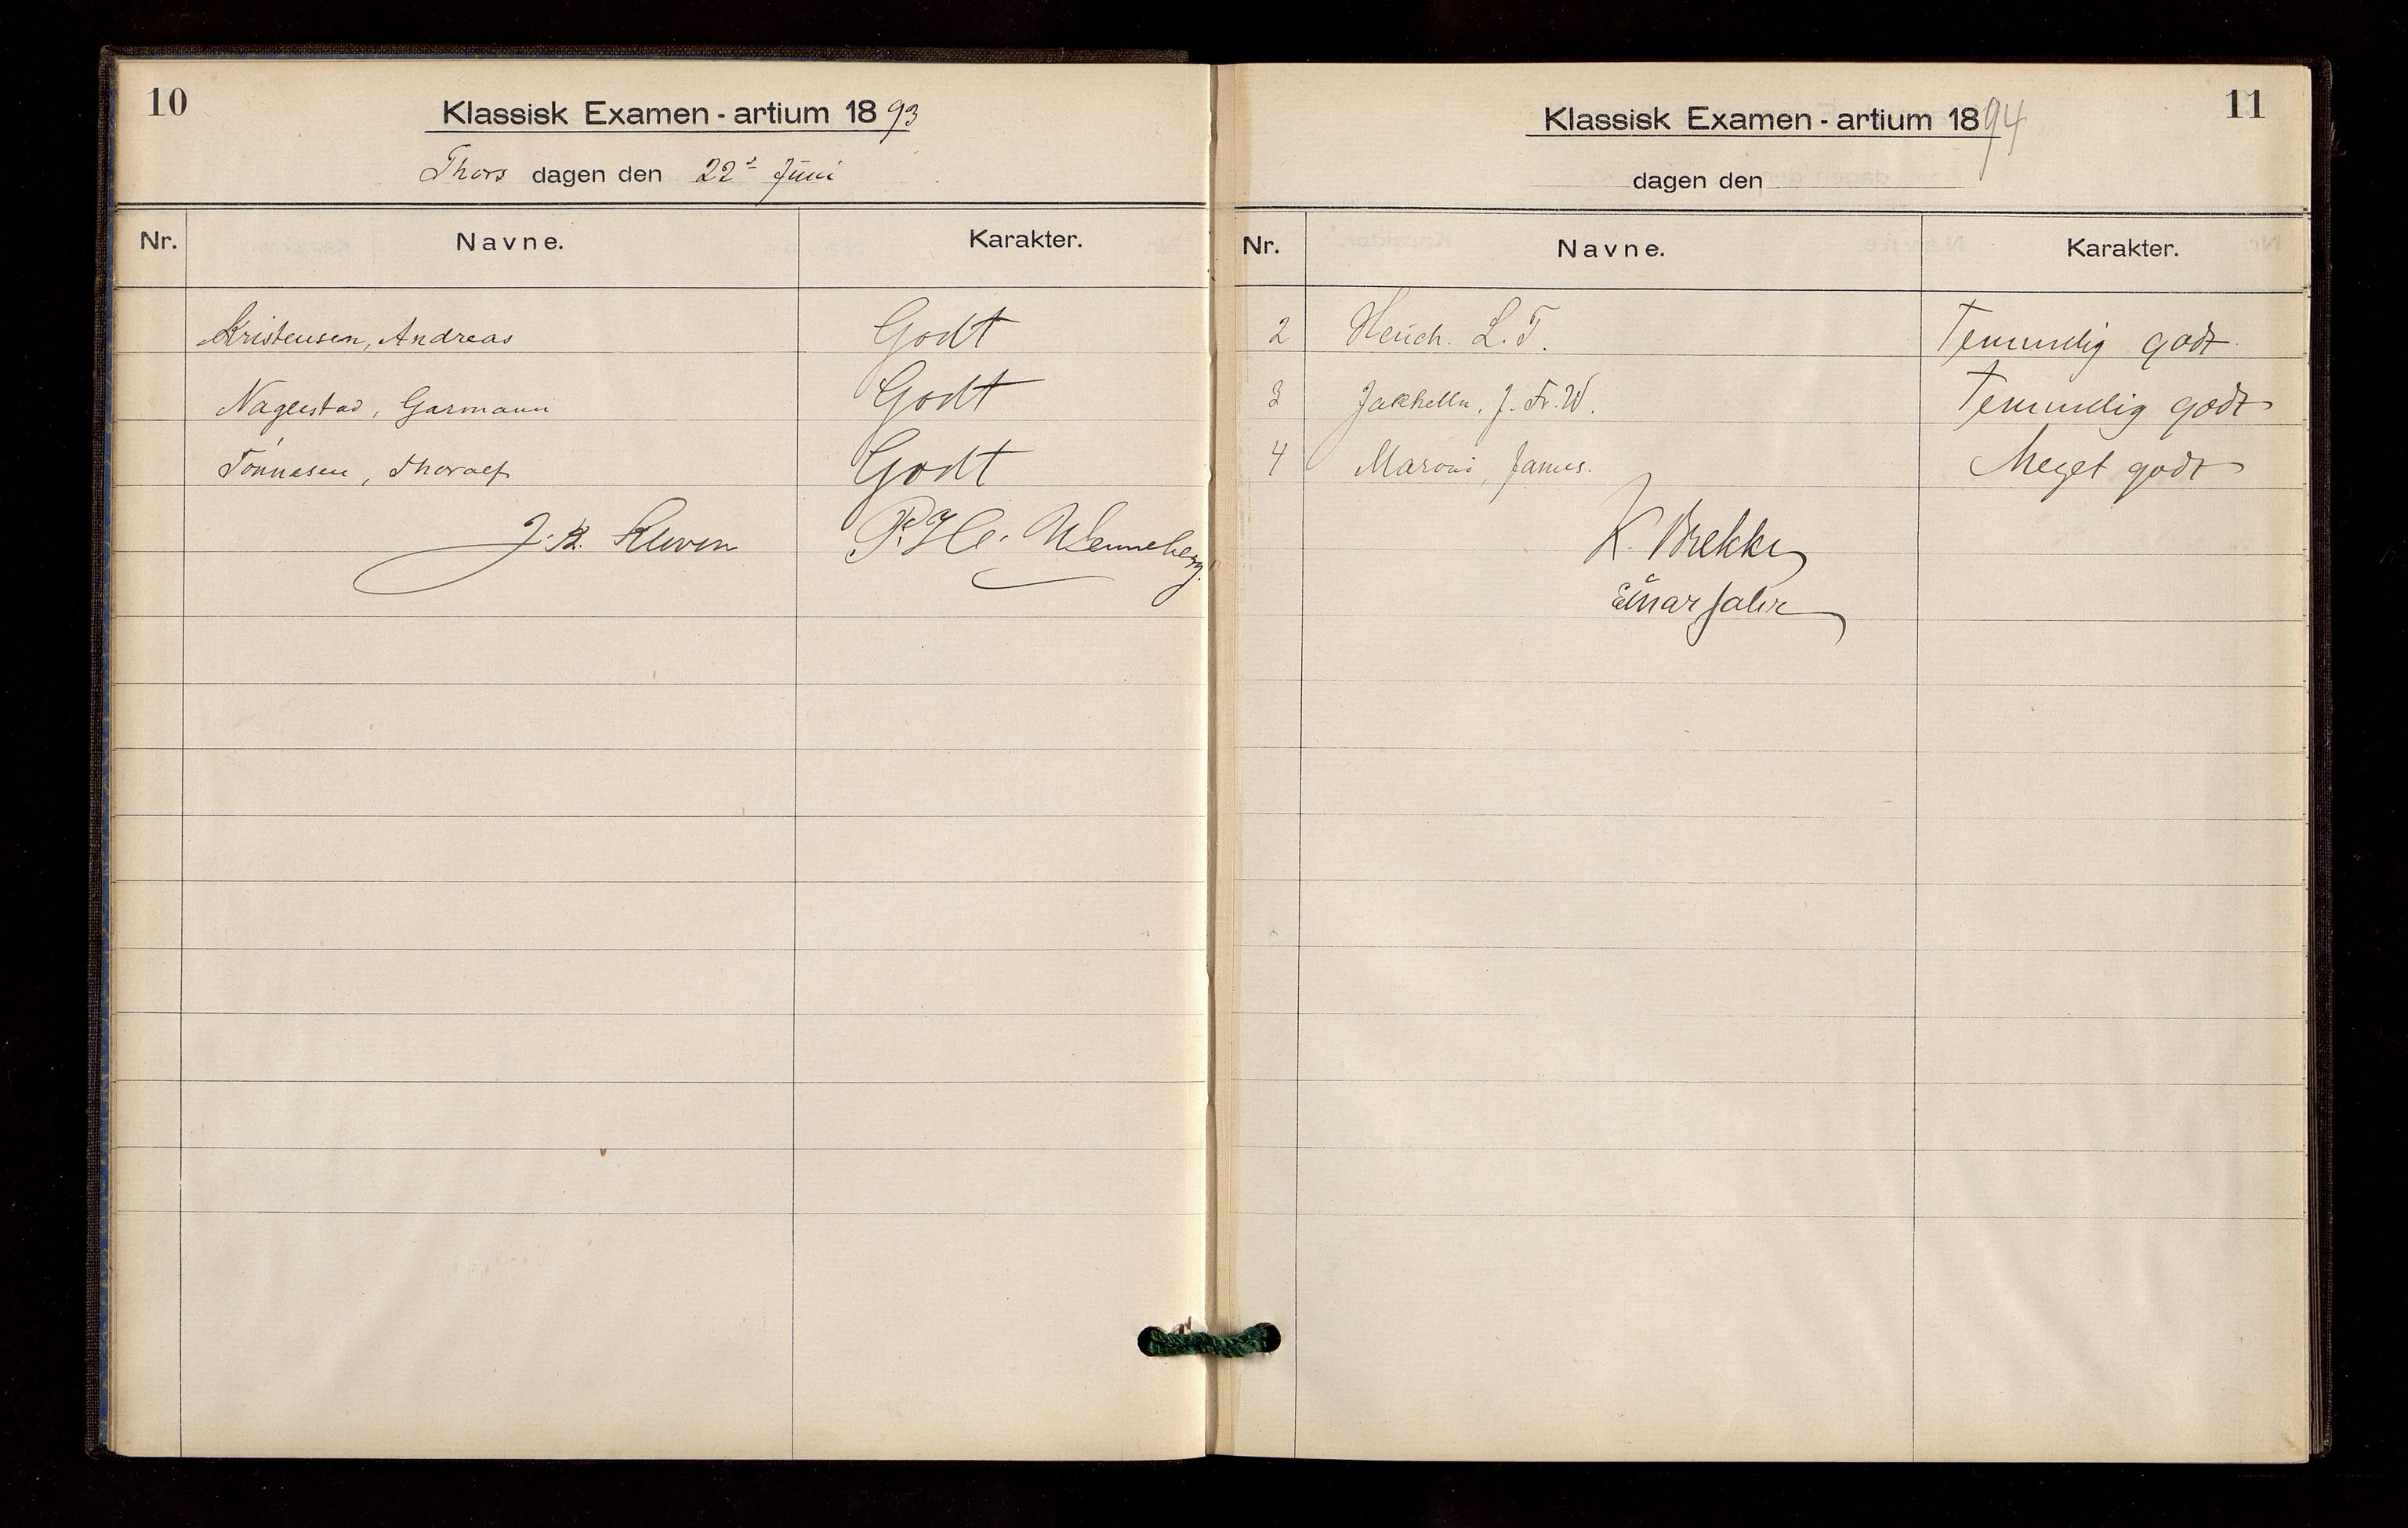 10
Klassisk Examen - artium 1893
Thors dagen den 22de Juni
Nr. Navne. Karakter.
Kristensen, Andreas Godt
Nagelstad, Garmann Godt
Tönnesen, Thoralf Godt
11
Klassisk Examen - artium 1894
dagen den
Nr. Navne. Karakter.
2 Heuch. L. T. Temmelig godt
3 Jakhelln, J. Fr. W. Temmelig godt
4 Maroni, James. Meget godt
K. Brekke
Einar